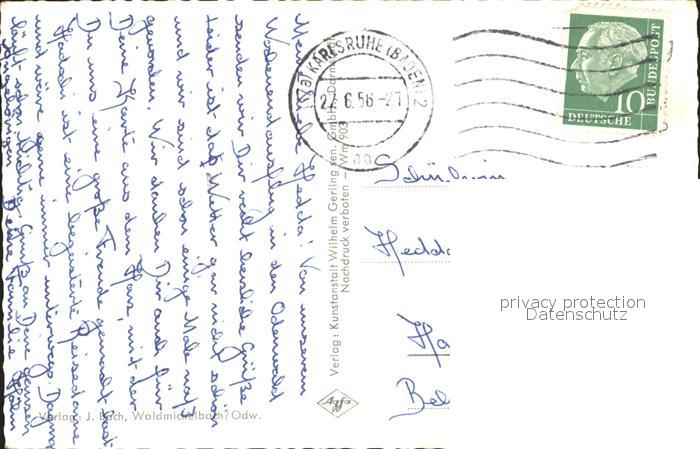 Meine liebe Hedda! Von unserem
Wochenendausflug in den Odenwald
senden wir Dir recht herzliche Grüße
Leider ist das Wetter gar nicht schön
und wir sind schon einige Male naß
geworden. Wir danken Dir auch für
Deine Karte aus dem Harz, mit der
Du uns eine große Freude gemacht hast
ist eine begeisterte Reisedame
und wäre gerne immer unterwegs.
läuft schon tüchtig. Grüß an Deine
Angehörigen
Verlag: J. Bach, Waldmichelbach/Odw.
Verlag: Kunstanstalt Wilhelm Gerling sen. GmbH. Darm
Nachdruck verboten — Wm 903
Agfa
KARLSRUHE (BADEN) 2
27.6.56-21
aa
10
DEUTSCHE
BUNDESPOST
Hedda
Ha
Bel
privacy protection
Datenschutz